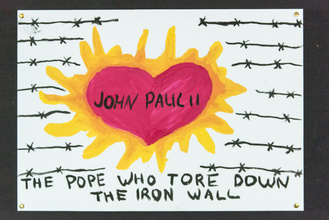 JOHN PAUL II
THE POPE WHO TORE DOWN
THE IRON WALL